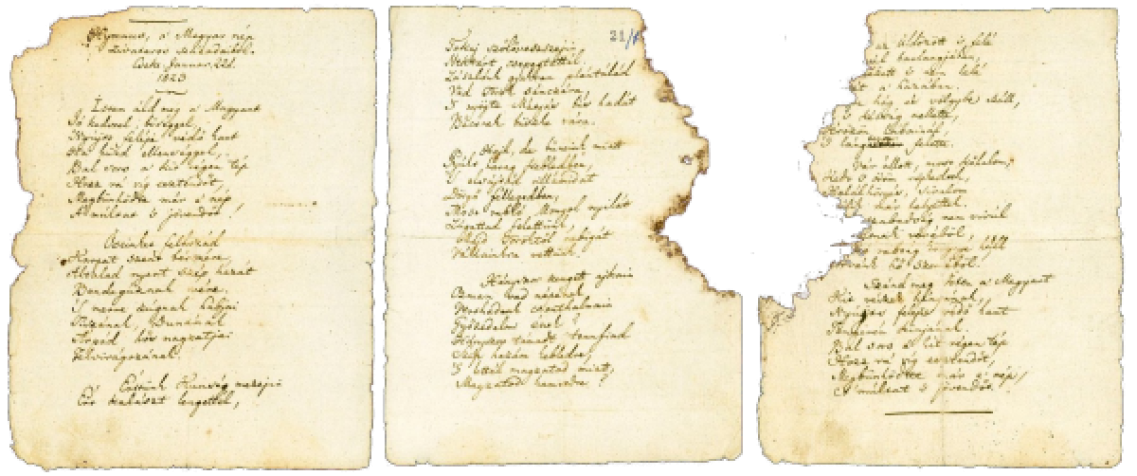 Hymnus, a' Magyar nép
zivataros századaiból.
Cseke. Januar. 22d.
1823
Isten áldd meg a' Magyart
Jó kedvvel, bőséggel,
Nyújts feléje védő kart
Ha küzd ellenséggel;
Bal sors a' kit régen tép
Hozz rá víg esztendőt,
Megbűnhődte már e' nép
A' múltat 's jövendőt!
Őseinket felhozád
Kárpát szent bérczére,
Általad nyert szép hazát
Bendegúznak vére.
'S merre zúgnak habjai
Tiszának, Dunának,
Árpád hős magzatjai
Felvirágozának.
Értünk Kunság mezején
Ért kalászt lengettél,
21/
Tokaj szőlővesszein
Nektárt csepegtettél.
Zászlónk gyakran plántálád
Vad Török sánczára,
'S nyögte Mátyás bús hadát
Bécsnek büszke vára.
Hajh, de bűneink miatt
Gyúlt harag kebledben,
'S elsújtád villámidat
Dörgő fellegedben,
Most rabló Mongol nyilát
Zúgattad felettünk,
Majd Töröktől rabigát
Vállainkra vettünk.
Hányszor zengett ajkain
Ozman vad népének
Vert hadunk csonthalmain
Győzedelmi ének!
Hányszor támadt tenfiad
Szép hazám kebledre,
'S lettél magzatod miatt
Magzatod hamvedre?
az üldözött 's felé
barlangjában,
nézett 's nem lelé
a' hazában.
hág és völgybe száll,
kétség mellette,
Vérözön lábainál,
'S lángtenger felette.
Vár állott, most kőhalom,
Kedv 's öröm röpkedtek,
Halálhörgés, siralom
már helyettek.
szabadság nem virúl
véréből,
rabság könnye hull
hő szeméből.
Szánd meg Isten a' Magyart
Kit vészek hányának,
Nyújts feléje védő kart
Tengerén kínjának.
Bal sors a' kit régen tép
Hozz rá víg esztendőt,
Megbűnhődte már e' nép
A' múltat 's jövendőt!